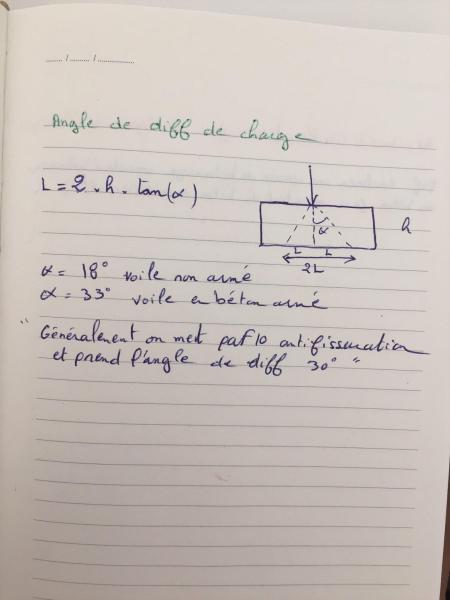 ...... / ....... / .............
Angle de diff de charge
L = 2 . h . tan(α)
α
h
L L
2L
α = 18° voile non armé
α = 33° voile en béton armé
" Généralement on met paf 10 antifissuration
et prend l'angle de diff 30° "